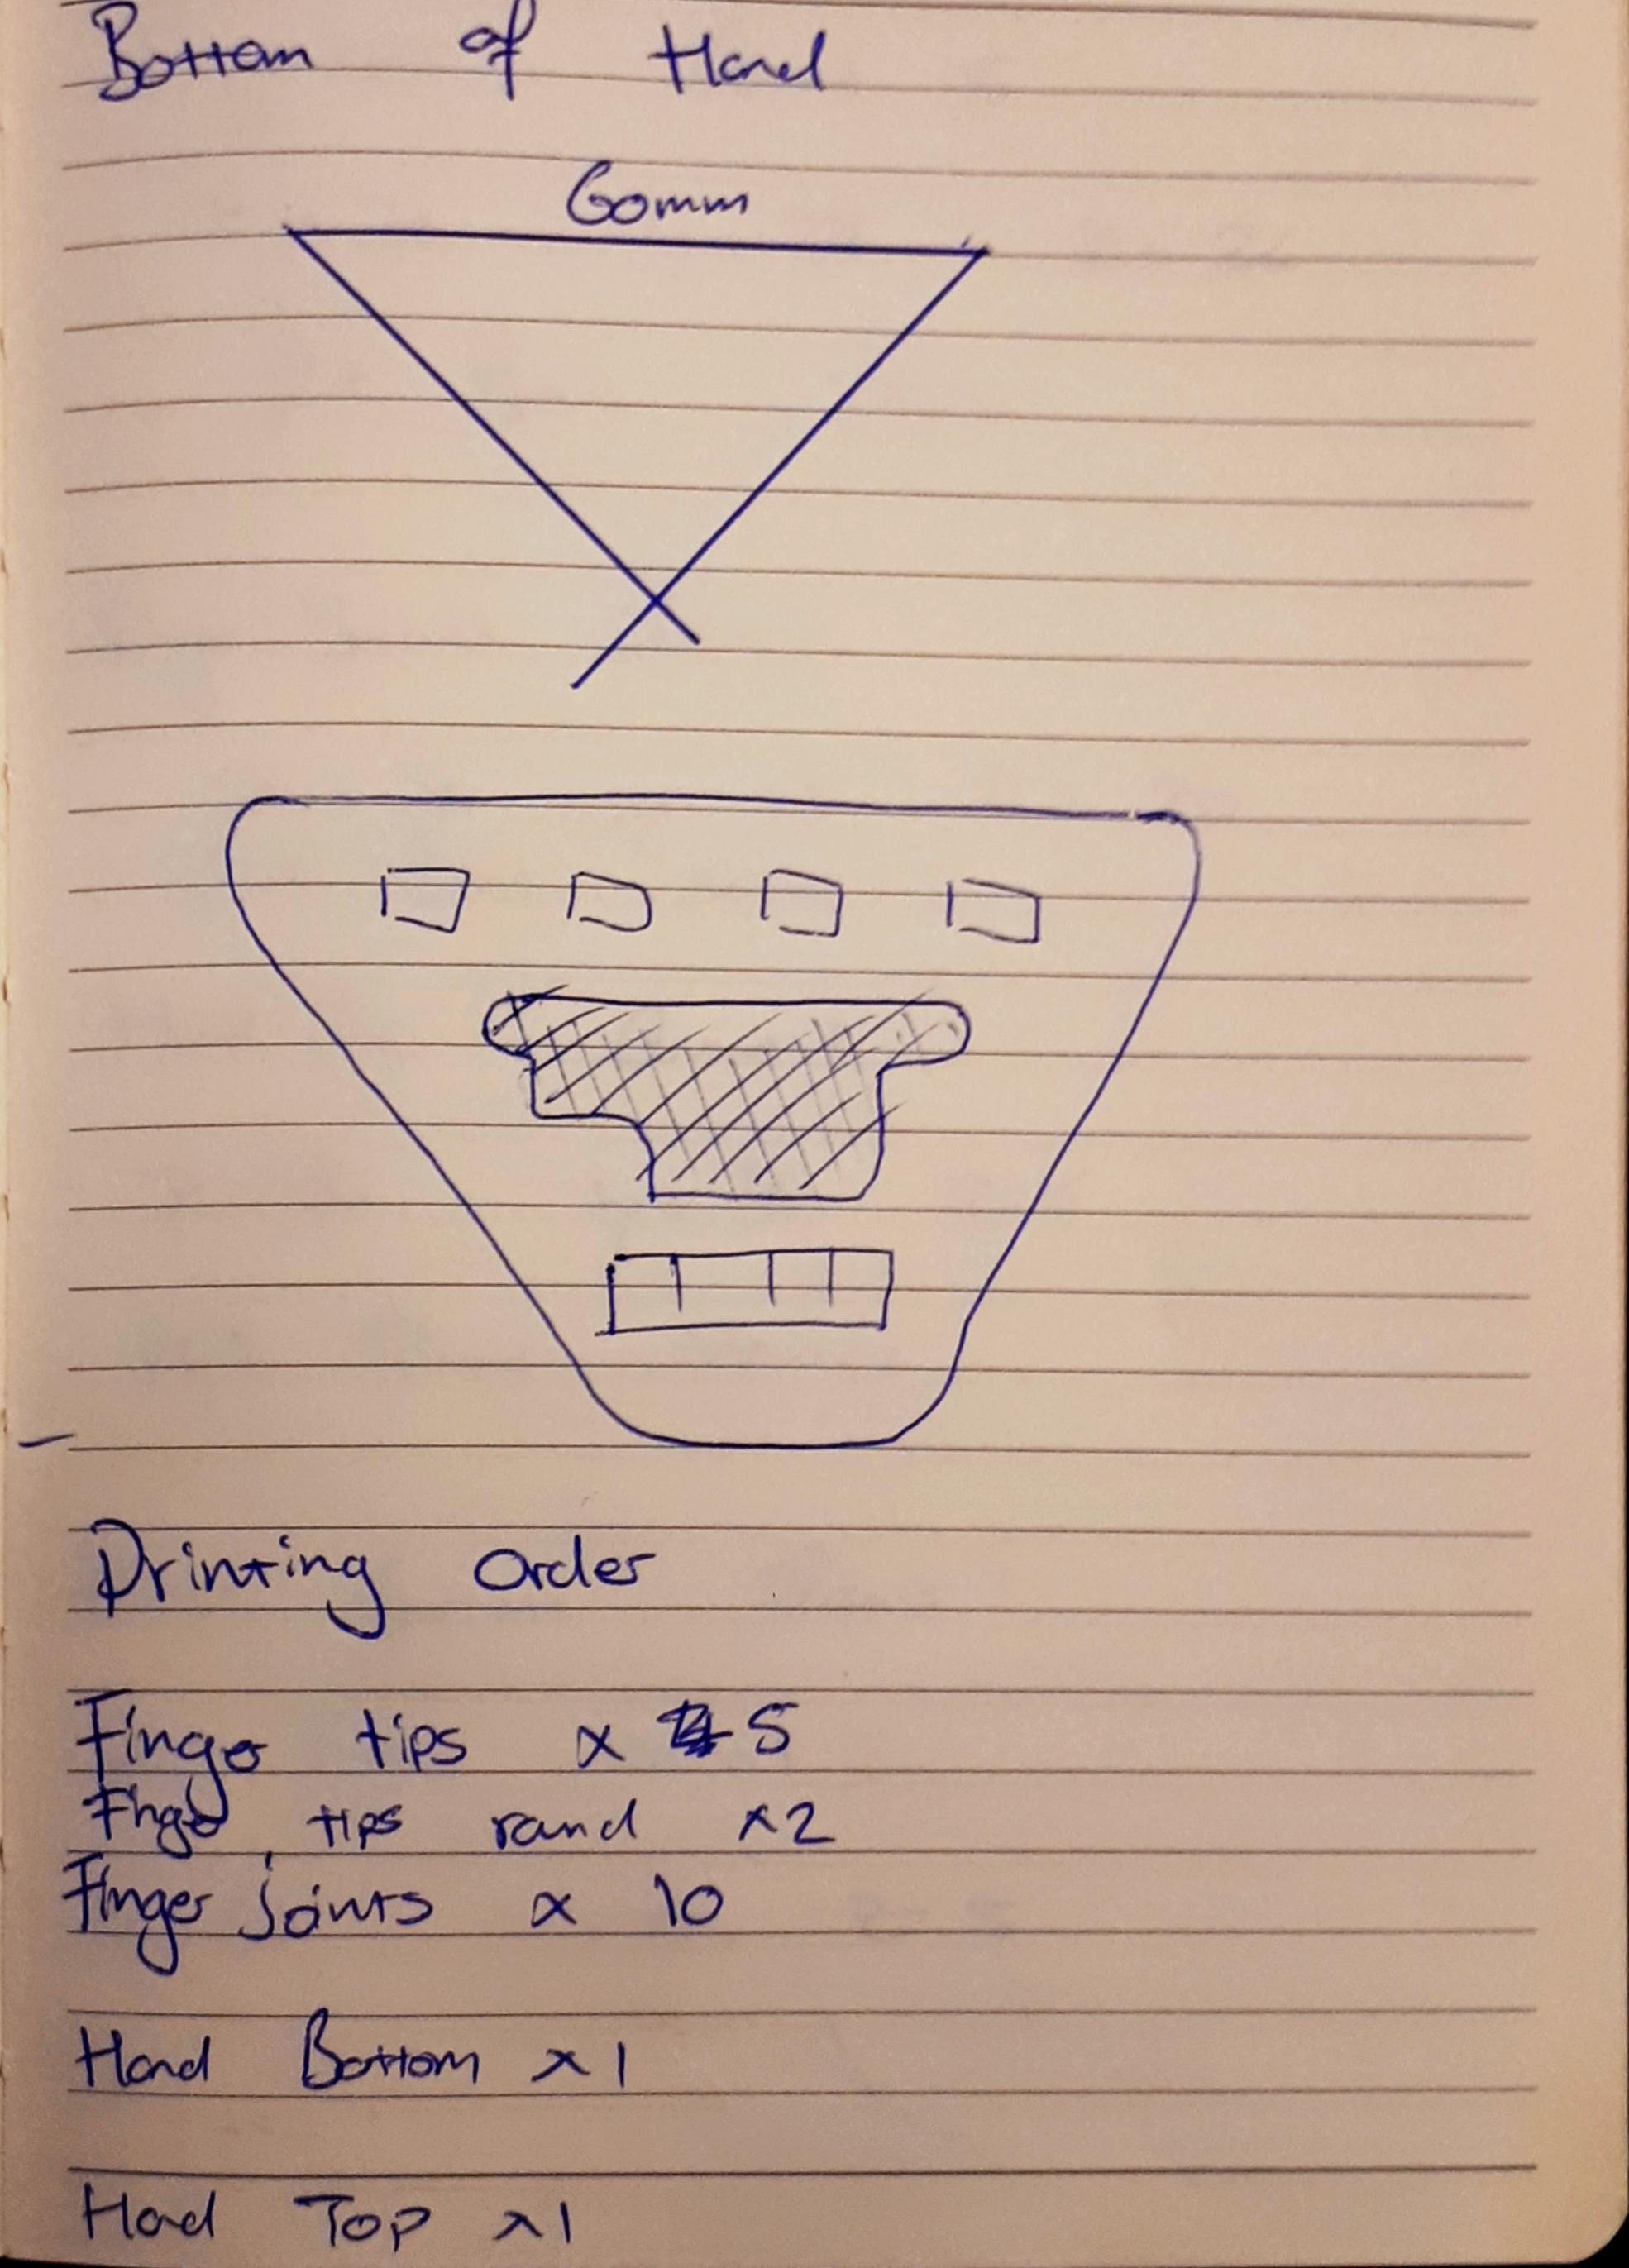 Bottom of Hand
60mm
Printing Order
Finger tips x 5
Finger tips rand x2
Finger joints x 10
Hand Bottom x1
Hand Top x1